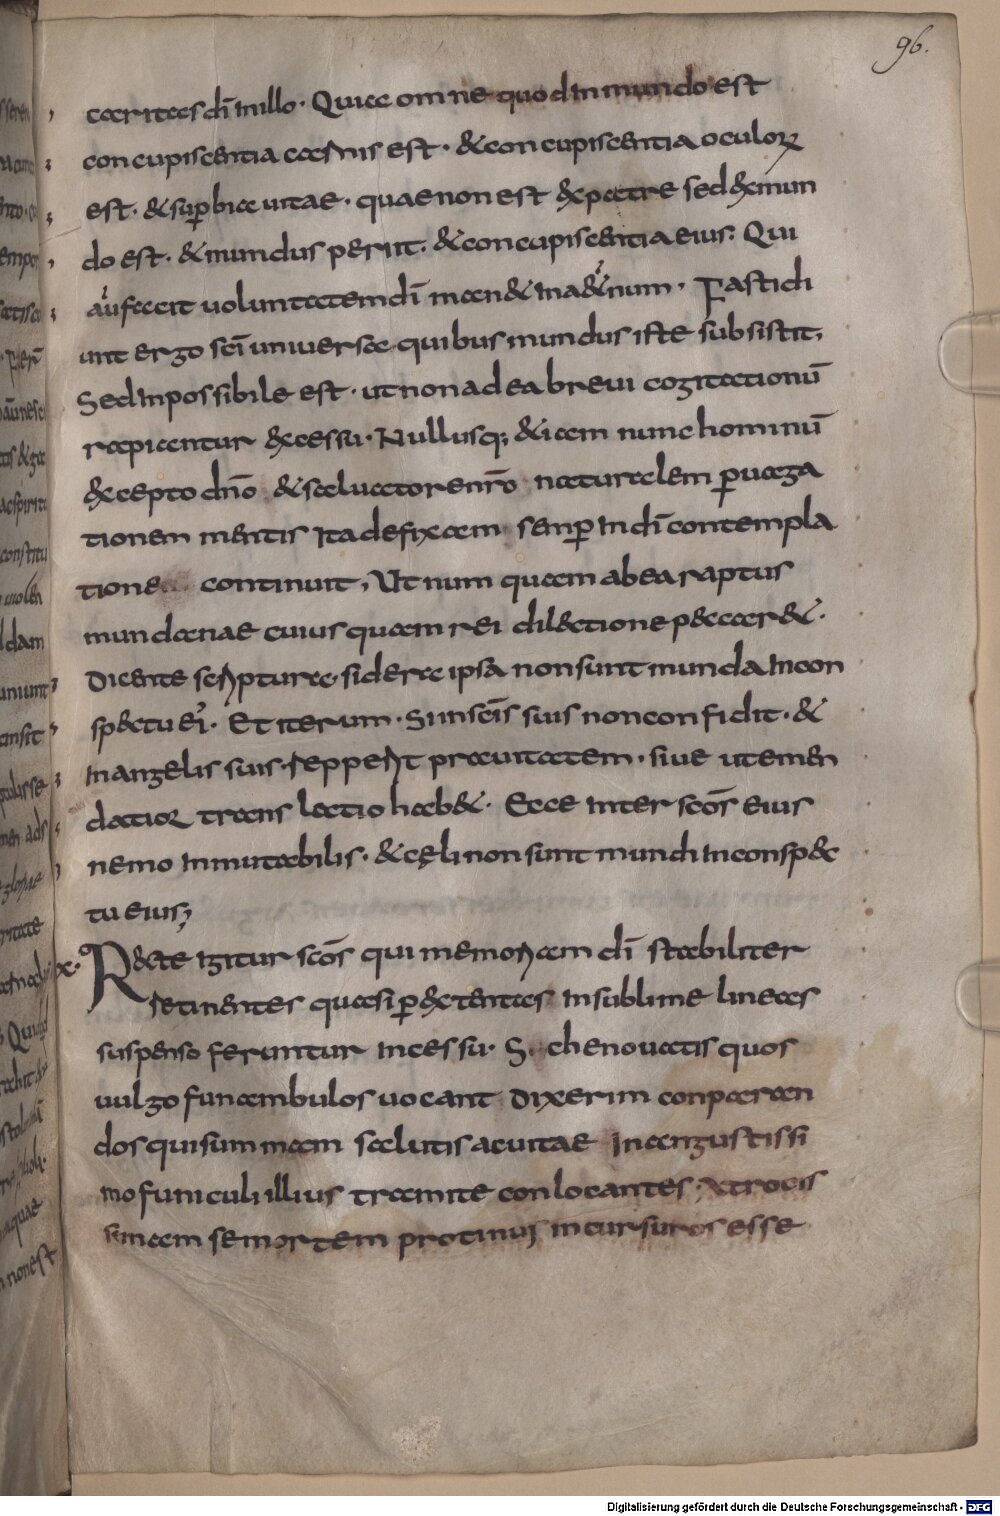 96.
caritas dī in illo · Quia omne quod in mundo est
concupiscentia carnis est · & concupiscentia oculoꝝ
est · & sup̄bia uitae · quae non est ex patre sed ex mun
do est · & mundus periit · & concupiscentia eius · Qui
aū fecerit uoluntatem dī man& in aet̾num · Fastidi
unt ergo scī uniuersa quibus mundus iste subsistit,
Sed inpossibile est · ut non ad ea breui cogitationū
rapiantur excessu · Nullusq; &iam nunc hominū
excepto dn̄o & saluatore nr̄o naturalem p̄uaga
tionem mentis ita defixam semp̄ in dī contempla
tione continuit, Ut numquam ab ea raptus
mundanae cuiusquam rei dilectione peccar& ·
Dicente scriptura · sidera ipsa non sunt munda in con
spectu ei̾ · Et iterum · Si in scīs suis non confidit · &
in angelis suis repperit prauitatem · siue ut emen
datioꝝ trans latio hab& · Ecce inter scōs eius
nemo inmutabilis · & cęli non sunt mundi in conspec
tu eius;
x · Recte igitur scōs qui memoriam dī stabiliter
retinentes quasi p̄ extentas in sublime lineas
suspenso feruntur incessu · S chenouatis quos
uulgo funambulos uocant dixerim conparan
dos qui summam salutis ac uitae In angustissi
mo funiculi illius tramite conlocantes, atrocis
simam se mortem protinus incursuros esse
Digitalisierung gefördert durch die Deutsche Forschungsgemeinschaft - DFG